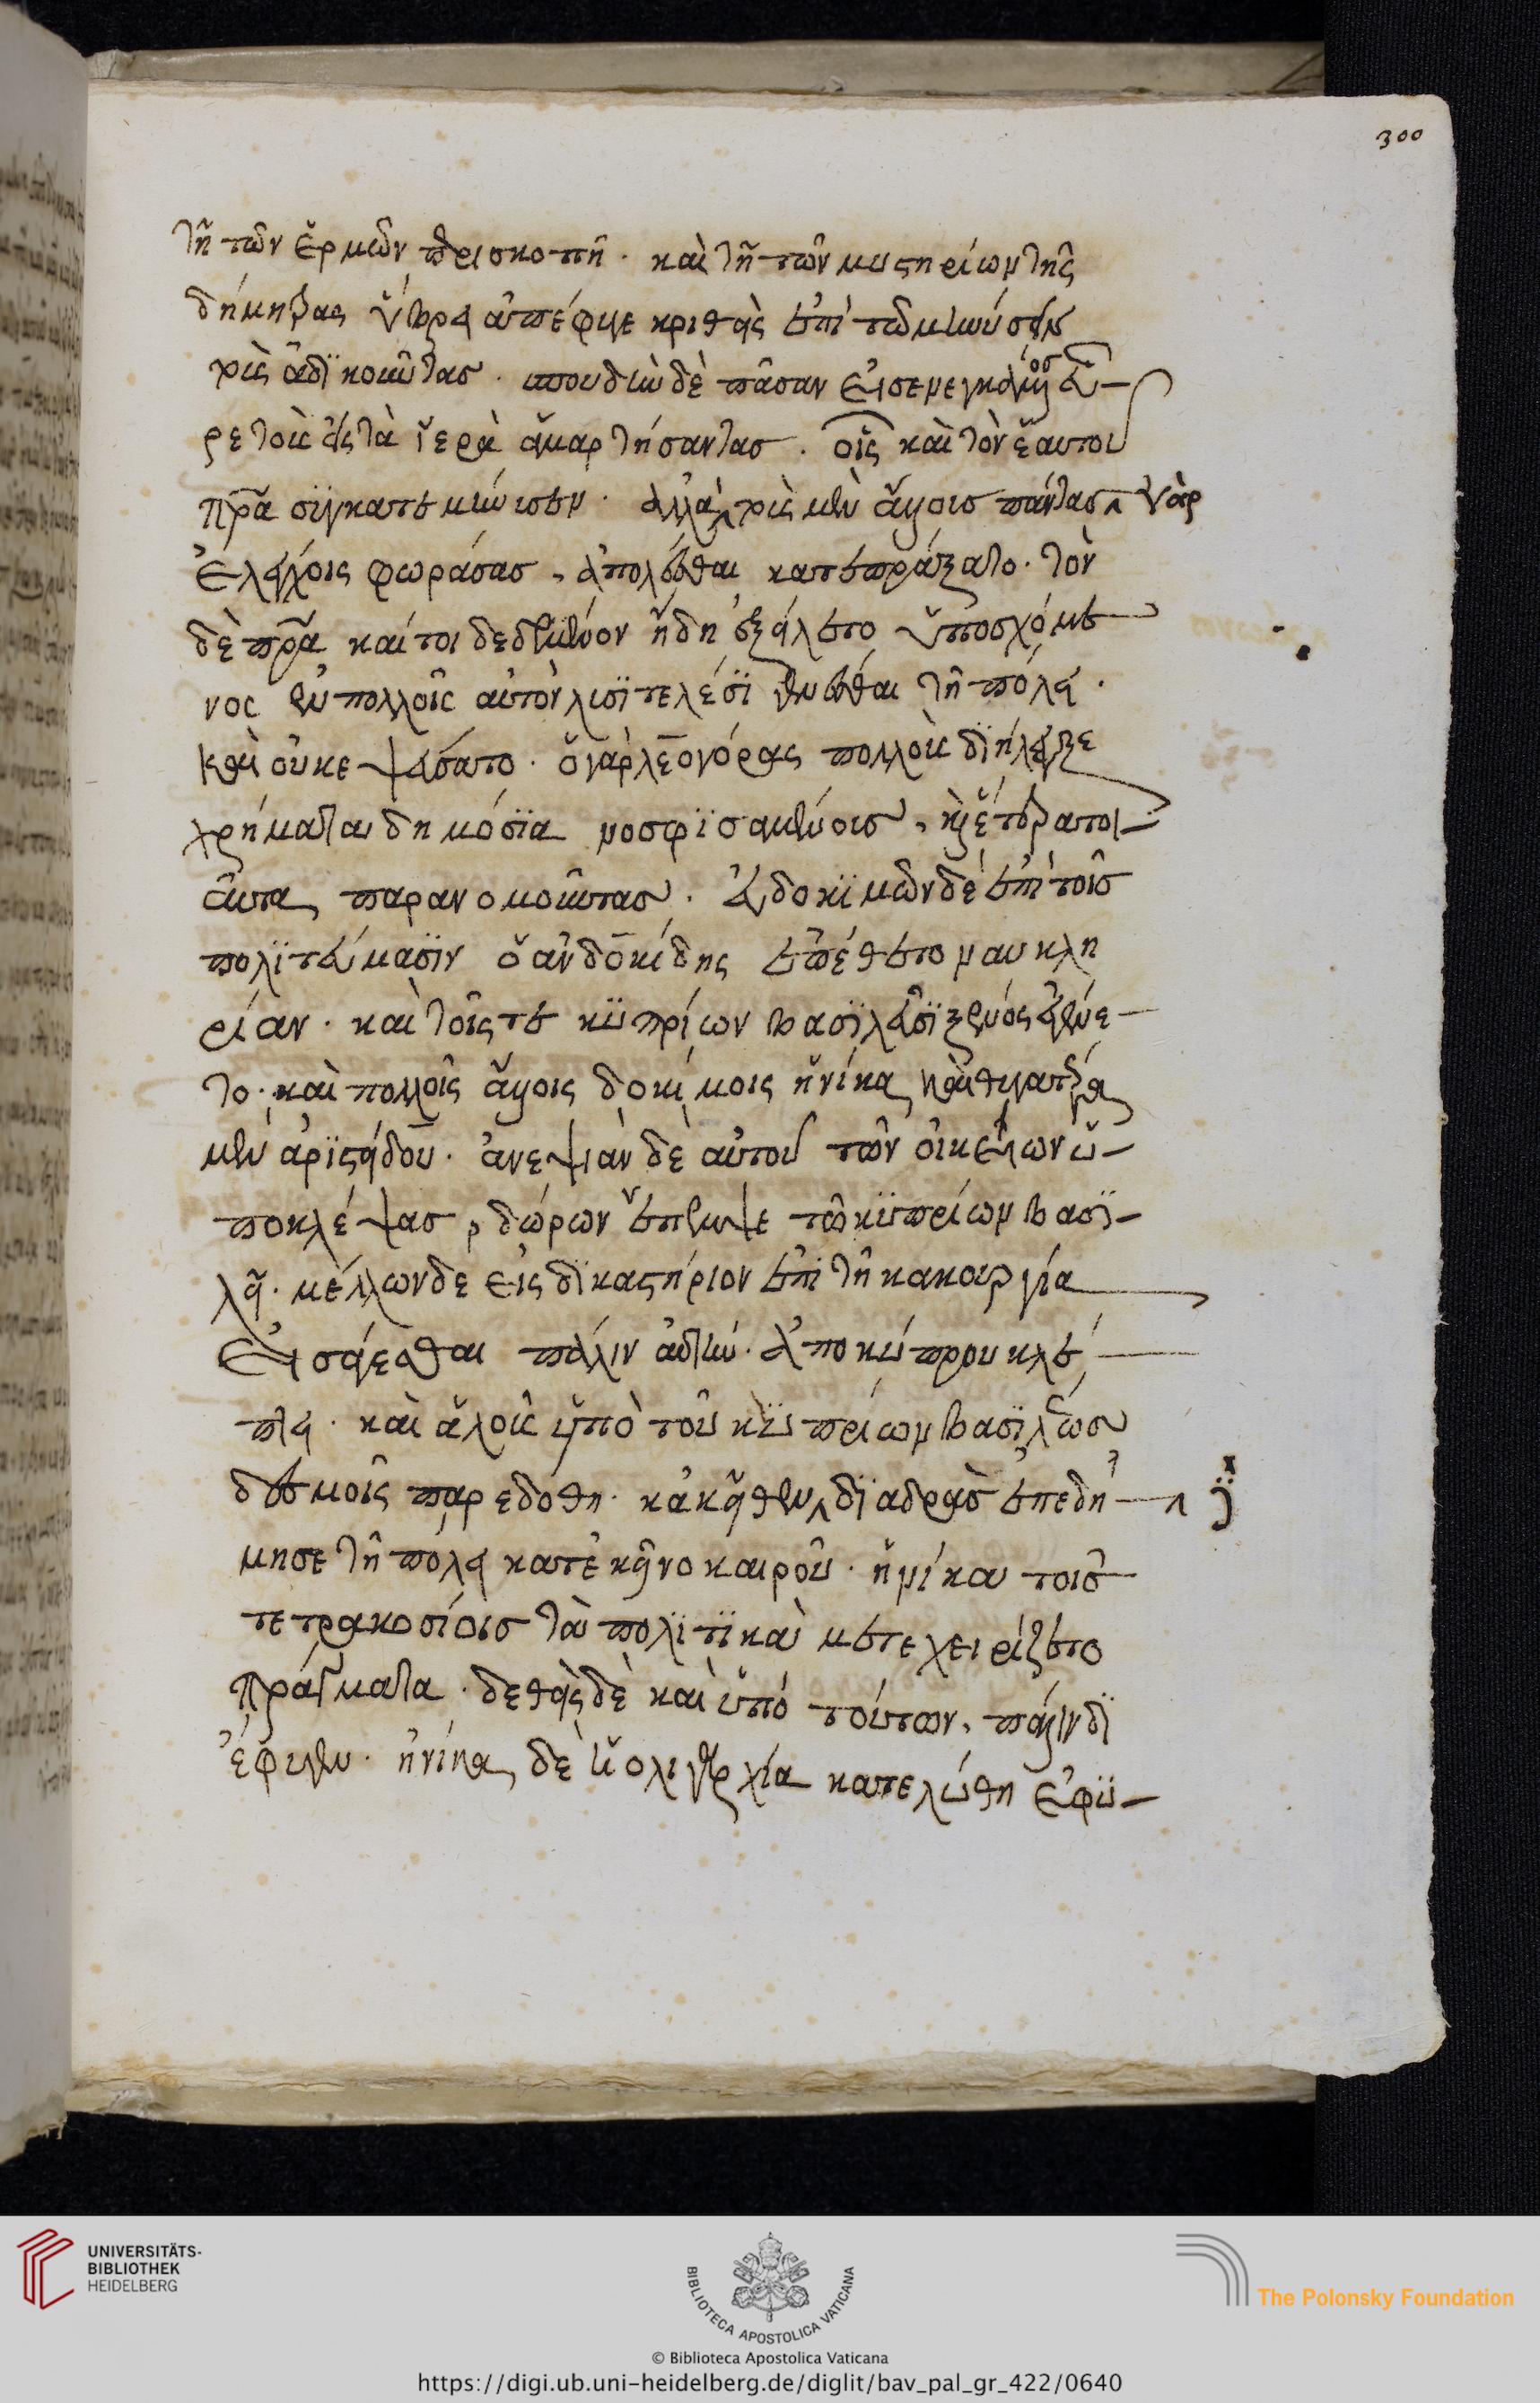 300
τῆ τῶν ἑρμῶν περικοπῆ. καὶ τῆ τῶν μυστηρίων τῆς
δήμητρας ὕβρει ἀπέφυγε κριθεὶς ἐπὶ τῶ μηνύσειν
τοὺς ἀδϊκοῦντας. σπουδὴν δὲ πᾶσαν εἰσενεγκάμενος εὗ-
ρε τοὺς εἰς τὰ ἱερὰ ἁμαρτήσαντας. οἷς καὶ τὸν ἑαυτοῦ
πρα συγκατεμήνυσεν. ἀλλὰ τοὺς μὲν ἄλλους πάντας γὰρ
ἐλέγχοις φωράσας, ἀπολέσθαι κατεπράξατο. τὸν
δὲ πρα καίτοι δεδεμένον ἤδη ἐξείλετο ὑποσχόμε
νος ἐν πολλοῖς αὐτὸν λυσϊτελέσϊ γενέσθαι τῆ πόλει.
καὶ οὐκ ἐψεύσατο. ὁ γὰρ λεογόρας πολλοὺς δϊήλεγξε
χρήματα δημόσϊα νοσφϊσαμένους, καὶ ἕτερα τοι-
αῦτα παρανομοῦντας. εὐδοκϊμῶν δὲ ἐπὶ τοῖς
πολϊτεύμασϊν ὁ ἀνδοκίδης ἐπέθετο ναυκλη
ρίαν. καὶ τοῖς τε κϋπρίων βασϊλεῦσϊ ξένος ἐγένε-
το. καὶ πολλοῖς ἄλλοις δοκίμοις ἡνίκα καὶ θυγατέρα
μὲν ἀρϊστείδου. ἀνεψιὰν δὲ αὐτοῦ τῶν οἰκείων ὑ-
ποκλέψας, δῶρον ἔπεμψε τῶ κϋπρίων βασϊ-
λεῖ. μέλλων δὲ εἰς δϊκαστήριον ἐπὶ τῆ κακουργία
εἰσάγεσθαι πάλιν αὐτὴν. ἀπὸ κύπρου κλέ-
πτει. καὶ ἁλοὺς ὑπὸ τοῦ κϋπρίων βασϊλέως
δεσμοῖς παρεδόθη. κἀκεῖθεν δϊαδρὰς ἐπεδή-
μησε τῆ πόλει κατ' ἐκεῖνο καιροῦ. ἡνίκα τοῖς
τετρακοσίοις τὰ πολϊτϊκὰ μετεχειρίζετο
πράγματα. δεθεὶς δὲ καὶ ὑπὸ τούτων, πάλιν δϊ
έφυγεν. ἡνίκα δὲ ἡ ὀλιγαρχία κατελύθη ἐφϋ-
UNIVERSITÄTS-
BIBLIOTHEK
HEIDELBERG
BIBLIOTECA APOSTOLICA VATICANA
The Polonsky Foundation
© Biblioteca Apostolica Vaticana
https://digi.ub.uni-heidelberg.de/diglit/bav_pal_gr_422/0640